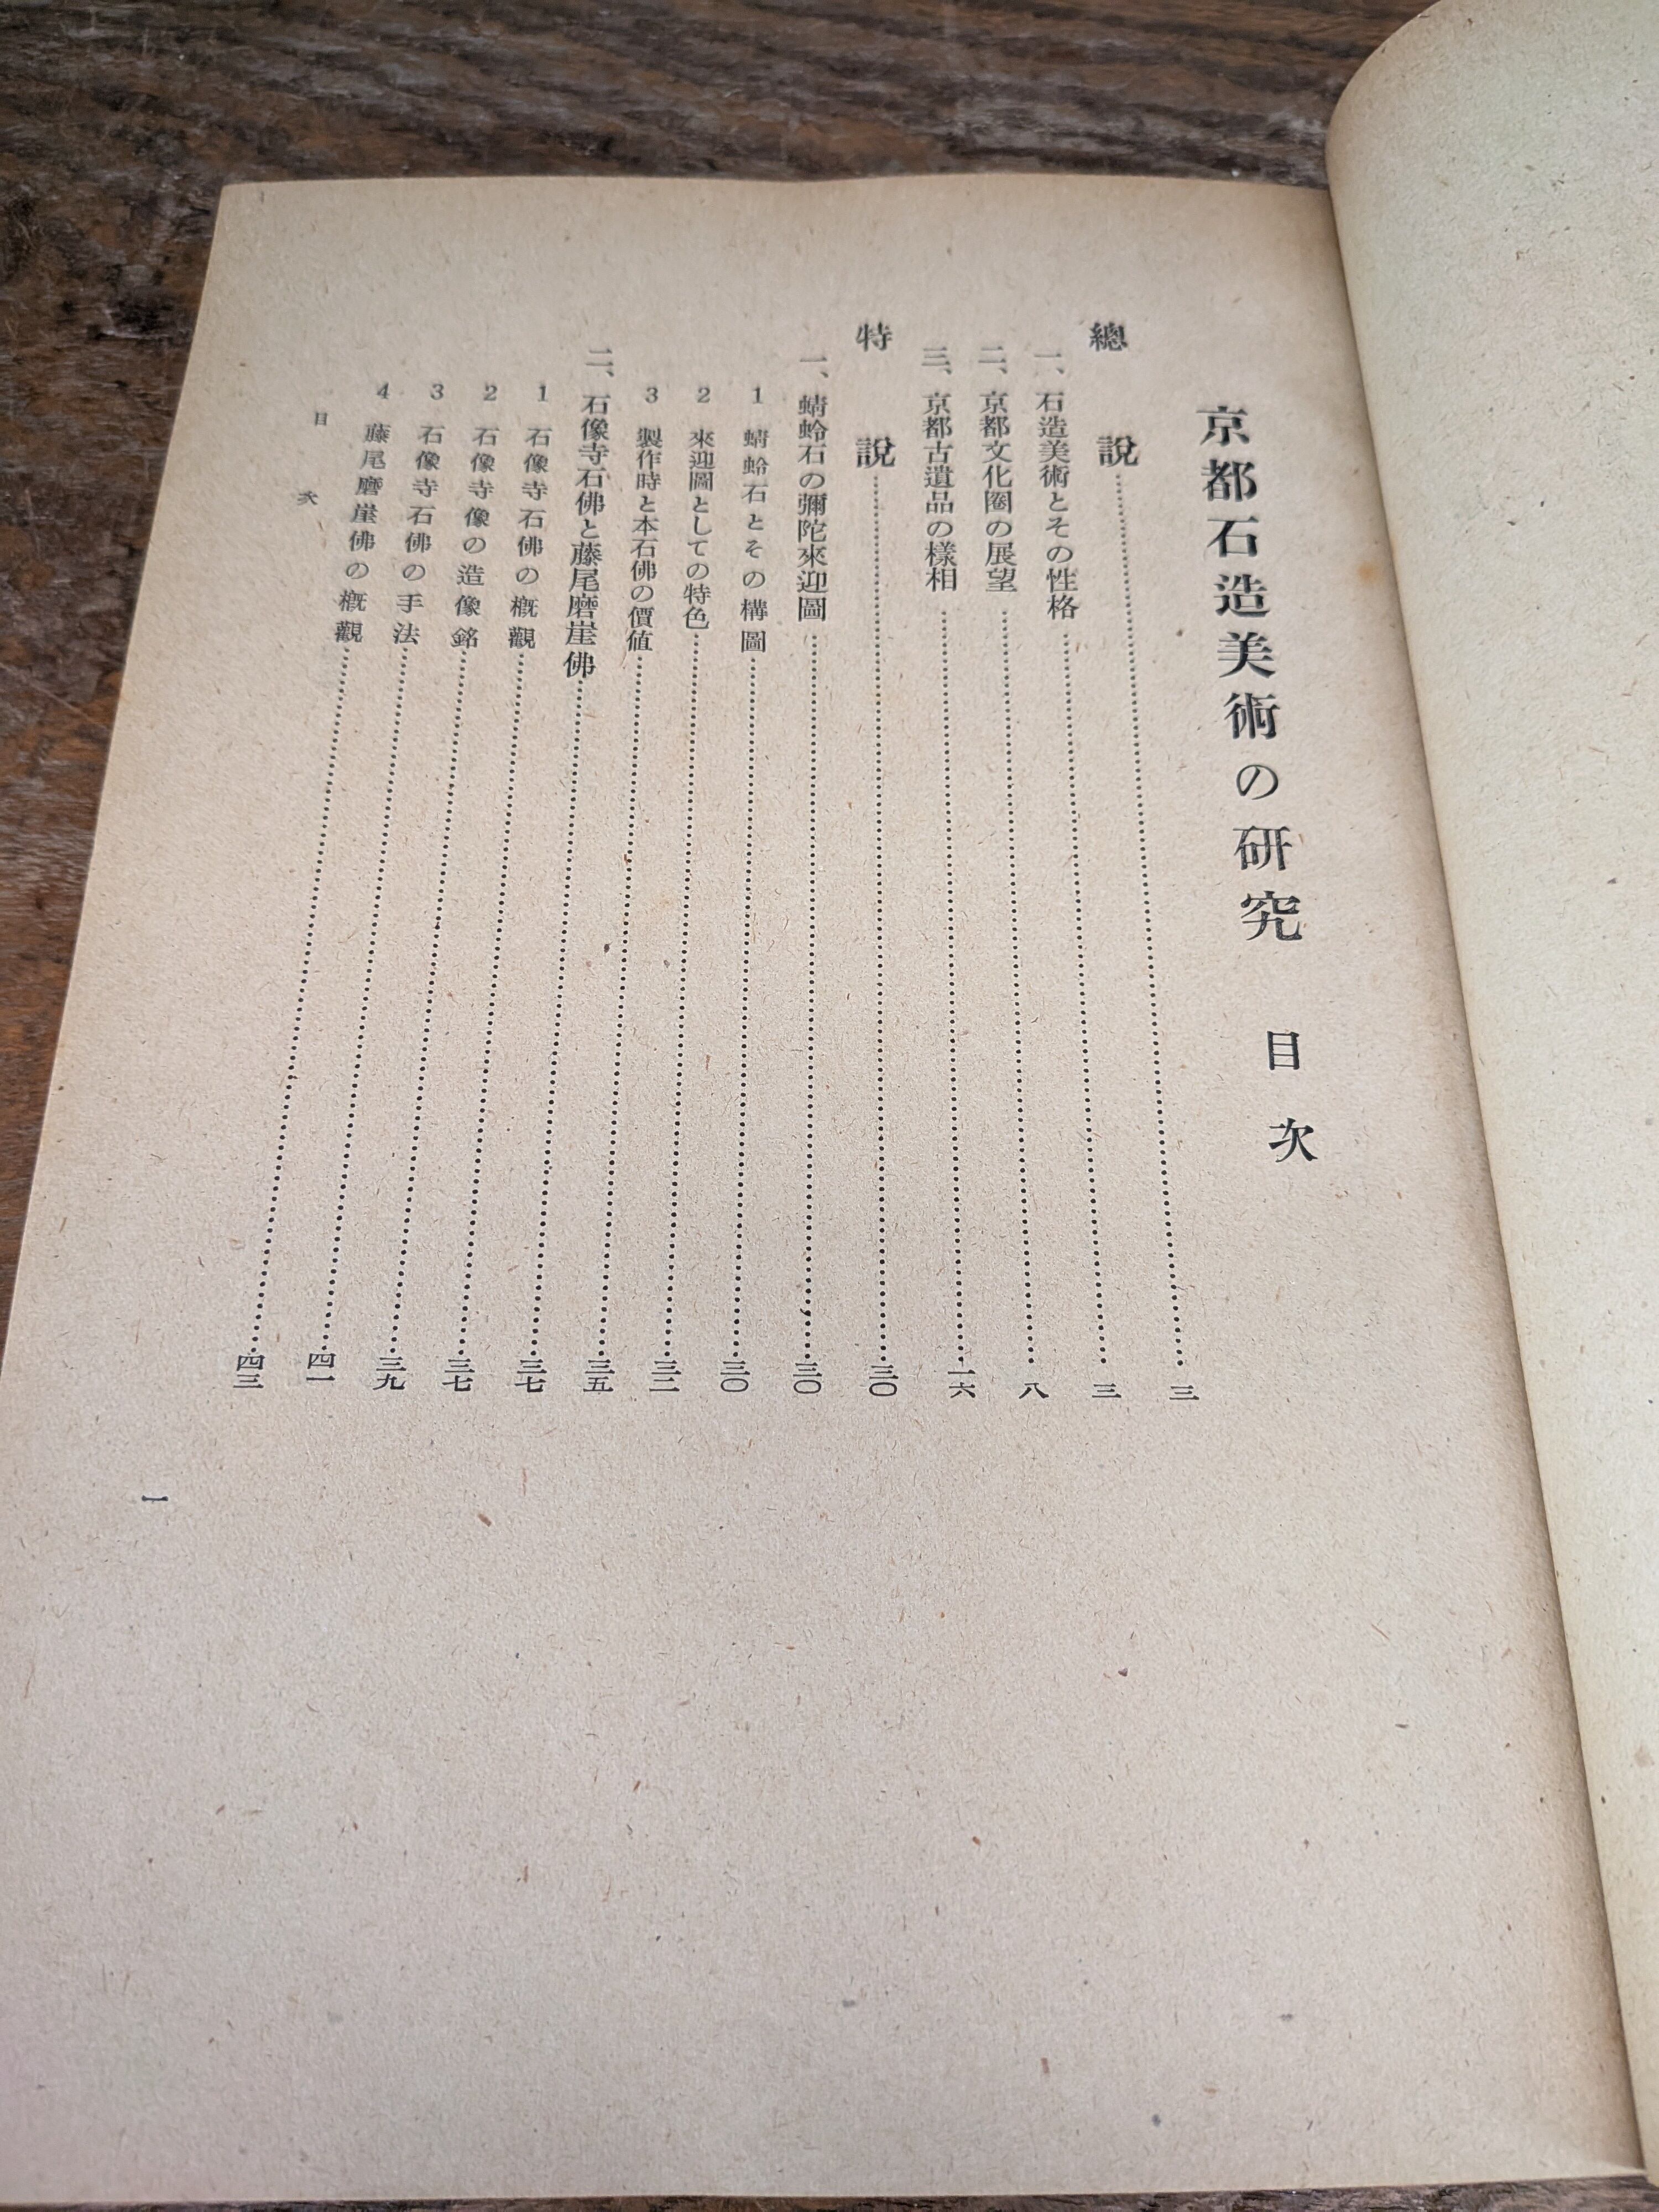 京都石造美術の研究 目次
總說……三
一、石造美術とその性格……三
二、京都文化圈の展望……八
三、京都古遺品の樣相……一六
特說……三〇
一、蜻蛉石の彌陀來迎圖……三〇
1 蜻蛉石とその構圖……三〇
2 來迎圖としての特色……三二
3 製作時と本石佛の價値……三五
二、石像寺石佛と藤尾磨崖佛……三七
1 石像寺石佛の槪觀……三七
2 石像寺像の造像銘……三九
3 石像寺石佛の手法……四一
4 藤尾磨崖佛の槪觀……四三
目次
一